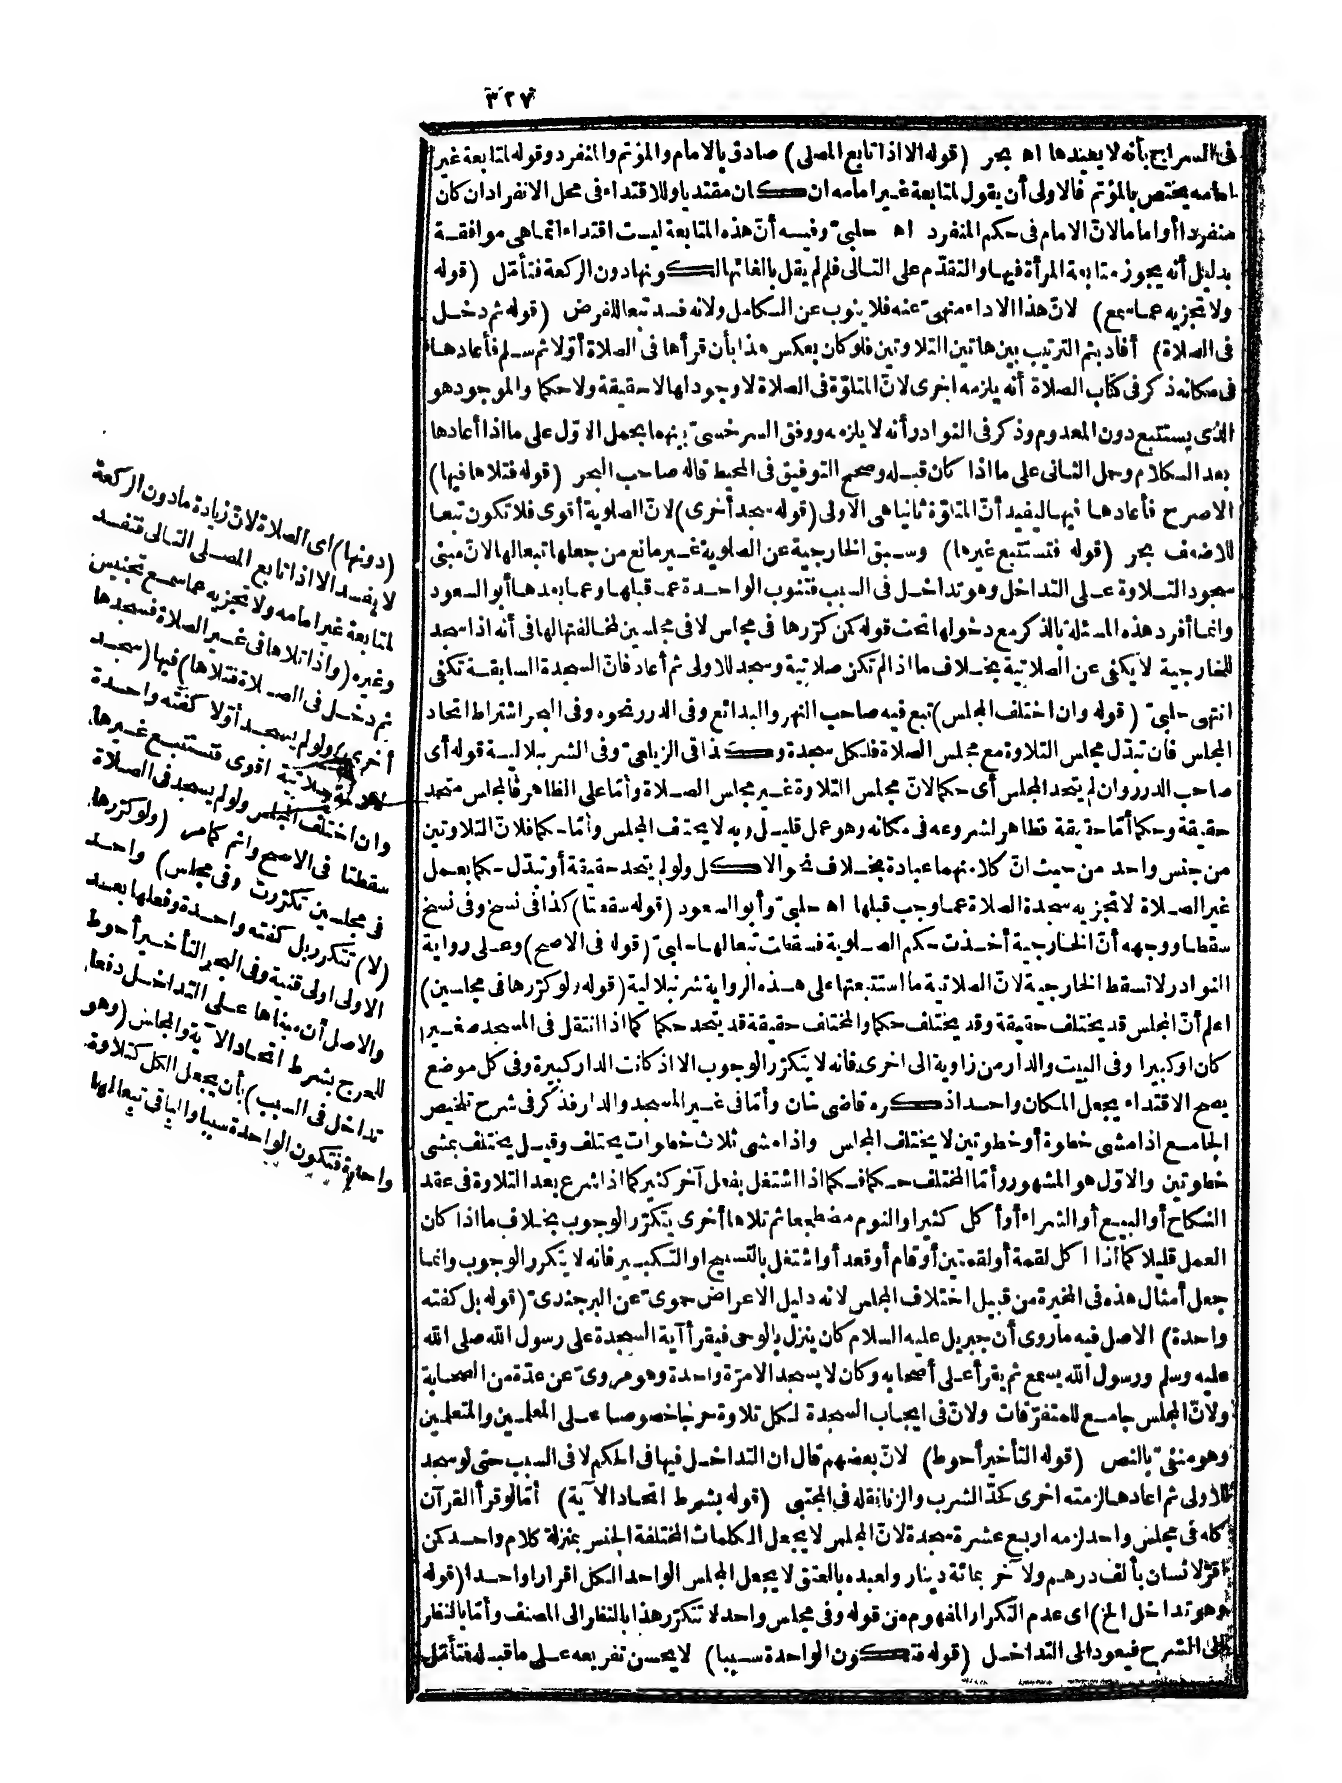 ٣٢٧
فى السراج بأنه لا يعيدها اه بحر (قوله الا اذا تابع المصلى) صادق بالامام والمؤتم والمنفرد وقوله لمتابعة غير
امامه يختص بالمؤتم فالاولى أن يقول لمتابعة غير امامه ان كان مقتديا وللاقتداء فى محل الانفراد ان كان
منفردا أو اماما لانّ الامام فى حكم المنفرد اه حلبىّ وفيه أنّ هذه المتابعة ليست اقتداء انما هى موافقة
بدليل أنه يجوز متابعة المرأة فيها والتقدّم على التالى فلم لم يقل بالغائها لكونها دون الركعة فتأمّل (قوله
ولا تجزيه عما سمع) لانّ هذا الاداء منهىّ عنه فلا ينوب عن الكامل ولانه فسد تبعا للفرض (قوله ثم دخل
فى الصلاة) أفاد بثم الترتيب بين هاتين التلاوتين فلو كان بعكس هذا بأن قرأها فى الصلاة أوّلا ثم سلم فأعادها
فى مكانه ذكر فى كتاب الصلاة أنه يلزمه اخرى لانّ المتلوّة فى الصلاة لا وجود لها لا حقيقة ولا حكما والموجود هو
الذى يستتبع دون المعدوم وذكر فى النوادر أنه لا يلزمه ووفق السرخسىّ بينهما بحمل الاوّل على ما اذا أعادها
بعد الكلام وحمل الثانى على ما اذا كان قبله وصحح التوفيق فى المحيط قاله صاحب البحر (قوله فتلاها فيها)
الاصرح فأعادها فيها ليفيد أنّ المتلوّة ثانيا هى الاولى (قوله سجد أخرى) لانّ الصلوية أقوى فلا تكون تبعا
للاضعف بحر (قوله فتستتبع غيرها) وسبق الخارجية عن الصلوية غير مانع من جعلها تبعا لها لانّ مبنى
سجود التلاوة على التداخل وهو تداخل فى السبب فتنوب الواحدة عما قبلها وعما بعدها أبو السعود
وانما أفرد هذه المسئلة بالذكر مع دخولها تحت قوله كمن كرّرها فى مجلس لا فى مجلسين لمخالفتها لها فى أنه اذا سجد
للخارجية لا يكفى عن الصلاتية بخلاف ما اذا لم تكن صلاتية وسجد للاولى ثم أعاد فانّ السجدة السابقة تكفى
انتهى حلبىّ (قوله وان اختلف المجلس) تبع فيه صاحب النهر والبدائع وفى الدرر نحوه وفى البحر اشتراط اتحاد
المجلس فان تبدّل مجلس التلاوة مع مجلس الصلاة فلكل سجدة وكذا فى الزيلعىّ وفى الشرنبلالية قوله أى
صاحب الدرر وان لم يتحد المجلس أى حكما لانّ مجلس التلاوة غير مجلس الصلاة وأمّا على الظاهر فالمجلس متحد
حقيقة وحكما أمّا حقيقة فظاهر لشروعه فى مكانه وهو عمل قليل وبه لا يختلف المجلس وأمّا حكما فلانّ التلاوتين
من جنس واحد من حيث انّ كلا منهما عبادة بخلاف نحو الاكل ولو لم يتحد حقيقة أو تبدّل حكما بعمل
غير الصلاة لا تجزيه سجدة الصلاة عما وجب قبلها اه حلبىّ وأبو السعود (قوله سقطتا) كذا فى نسخ وفى نسخ
سقطا ووجهه أنّ الخارجية أخذت حكم الصلوية فسقطت تبعا لها حلبىّ (قوله فى الاصح) وعلى رواية
النوادر لا تسقط الخارجية لانّ الصلاتية ما استتبعتها على هذه الرواية شرنبلالية (قوله ولو كرّرها فى مجلسين)
اعلم أنّ المجلس قد يختلف حقيقة وقد يختلف حكما والمختلف حقيقة قد يتحد حكما كما اذا انتقل فى المسجد صغيرا
كان او كبيرا وفى البيت والدار من زاوية الى اخرى فانه لا يتكرّر الوجوب الا اذ كانت الدار كبيرة وفى كل موضع
يصح الاقتداء يجعل المكان واحدا ذكره قاضى خان وأمّا فى غير المسجد والدار فذكر فى شرح تلخيص
الجامع اذا مشى خطوة أو خطوتين لا يختلف المجلس واذا مشى ثلاث خطوات يختلف وقيل يختلف بمشى
خطوتين والاوّل هو المشهور وأمّا المختلف حكما فكما اذا اشتغل بفعل آخر كثير كما اذا شرع بعد التلاوة فى عقد
النكاح أو البيع أو الشراء أو أكل كثيرا والنوم مضطجعا ثم تلاها أخرى يتكرّر الوجوب بخلاف ما اذا كان
العمل قليلا كما اذا اكل لقمة أو لقمتين أو قام أو قعد أو اشتغل بالتسبيح او التكبير فانه لا يتكرر الوجوب وانما
جعل أمثال هذه فى المخيرة من قبيل اختلاف المجلس لانه دليل الاعراض حموىّ عن البرجندىّ (قوله بل كفته
واحدة) الاصل فيه ما روى أن جبريل عليه السلام كان ينزل بالوحى فيقرأ آية السجدة على رسول الله صلى الله
عليه وسلم ورسول الله يسمع ثم يقرأ على أصحابه وكان لا يسجد الا مرّة واحدة وهو مروىّ عن عدّة من الصحابة
ولانّ المجلس جامع للمتفرّقات ولانّ فى ايجاب السجدة لكل تلاوة حرجا خصوصا على المعلمين والمتعلمين
وهو منفىّ بالنص (قوله التأخير أحوط) لانّ بعضهم قال ان التداخل فيها فى الحكم لا فى السبب حتى لو سجد
للاولى ثم اعادها لزمته اخرى كحدّ الشرب والزنا نقله فى المجتبى (قوله بشرط اتحاد الآية) أمّا لو قرأ القرآن
كله فى مجلس واحد لزمه اربع عشرة سجدة لانّ المجلس لا يجعل الكلمات المختلفة الجنس بمنزلة كلام واحد كمن
اقرّ لانسان بألف درهم ولآخر بمائة دينار ولعبده بالعتق لا يجعل المجلس الواحد الكل اقرارا واحدا (قوله
وهو تداخل الخ) اى عدم التكرار المفهوم من قوله وفى مجلس واحد لا تتكرّر هذا بالنظر الى المصنف وأمّا بالنظر
الى الشرح فيعود الى التداخل (قوله فتكون الواحدة سببا) لا يحسن تفريعه على ما قبله فتأمّل
(دونها) اى الصلاة لانّ زيادة ما دون الركعة
لا يفسد الا اذا تابع المصلى التالى فتفسد
لمتابعة غير امامه ولا تجزيه عما سمع تجنيس
وغيره (واذا تلاها فى غير الصلاة فسجدها
ثم دخل فى الصلاة فتلاها) فيها (سجد
أخرى) ولو لم يسجد أوّلا كفته واحدة
لانّ الصلاتية اقوى فتستتبع غيرها
وان اختلف المجلس ولو لم يسجد فى الصلاة
سقطتا فى الاصح واثم كما مر (ولو كرّرها
فى مجلسين تكرّرت وفى مجلس) واحد
(لا) تتكرر بل كفته واحدة وفعلها بعد
الاولى اولى قنية وفى البحر التأخير أحوط
والاصل أن مبناها على التداخل دفعا
للحرج بشرط اتحاد الآية والمجلس (وهو
تداخل فى السبب) بأن يجعل الكل كتلاوة
واحدة فتكون الواحدة سببا والباقى تبعا لها